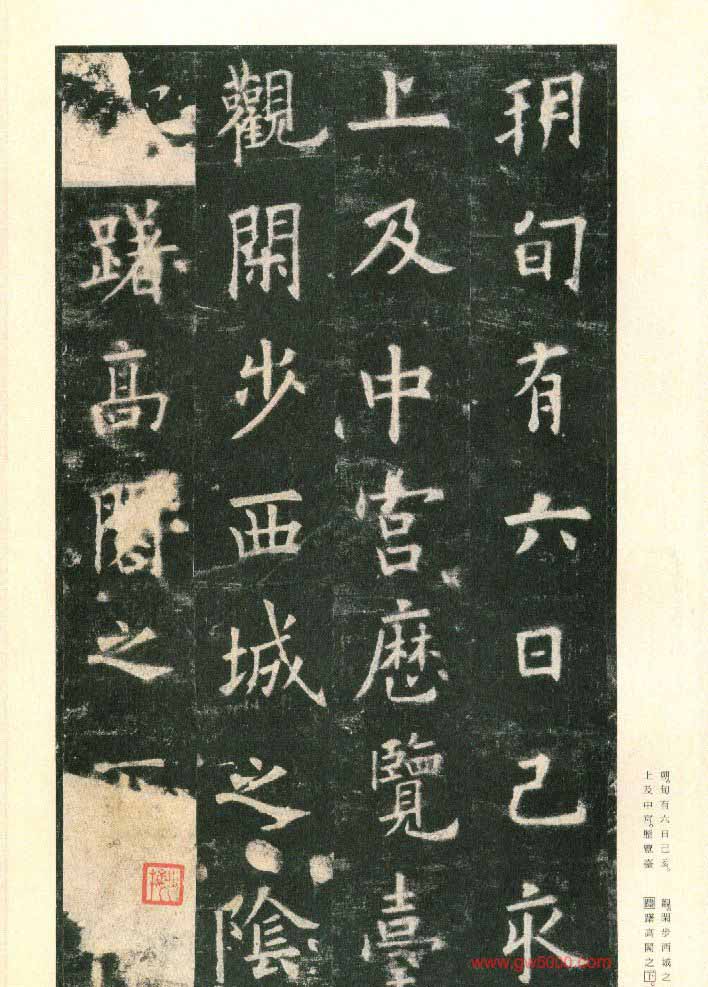 朔旬有六日己亥
上及中宮歷覽臺
觀閑步西城之陰
躇高閣之下
朔。旬有六日己亥。
上及中宮。歷覽臺
觀。閑步西城之
躊躇高閣之下。
www.gw5000.com